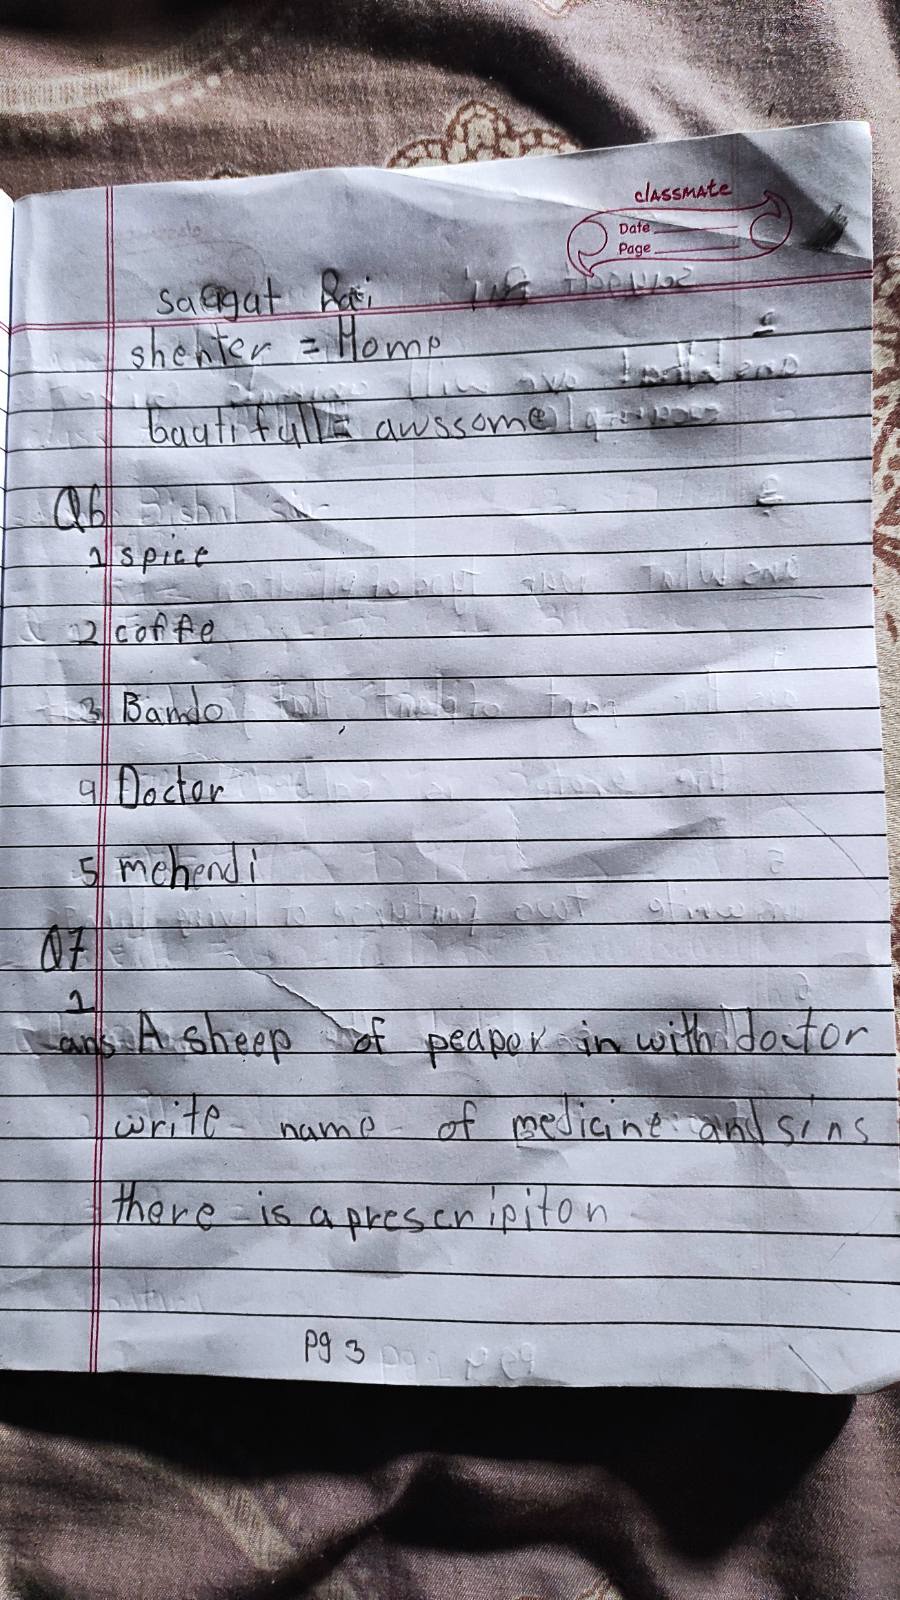 classmate
Date
Page
saugat Rai
shehter = Home
bautifull = awssome
Q6
1 spice
2 coffe
3 Bamdo
4 Doctor
5 mehendi
Q7
1
ans A sheep of peaper in with doctor
write name of medicine and sins
there is a prescripiton
pg 3